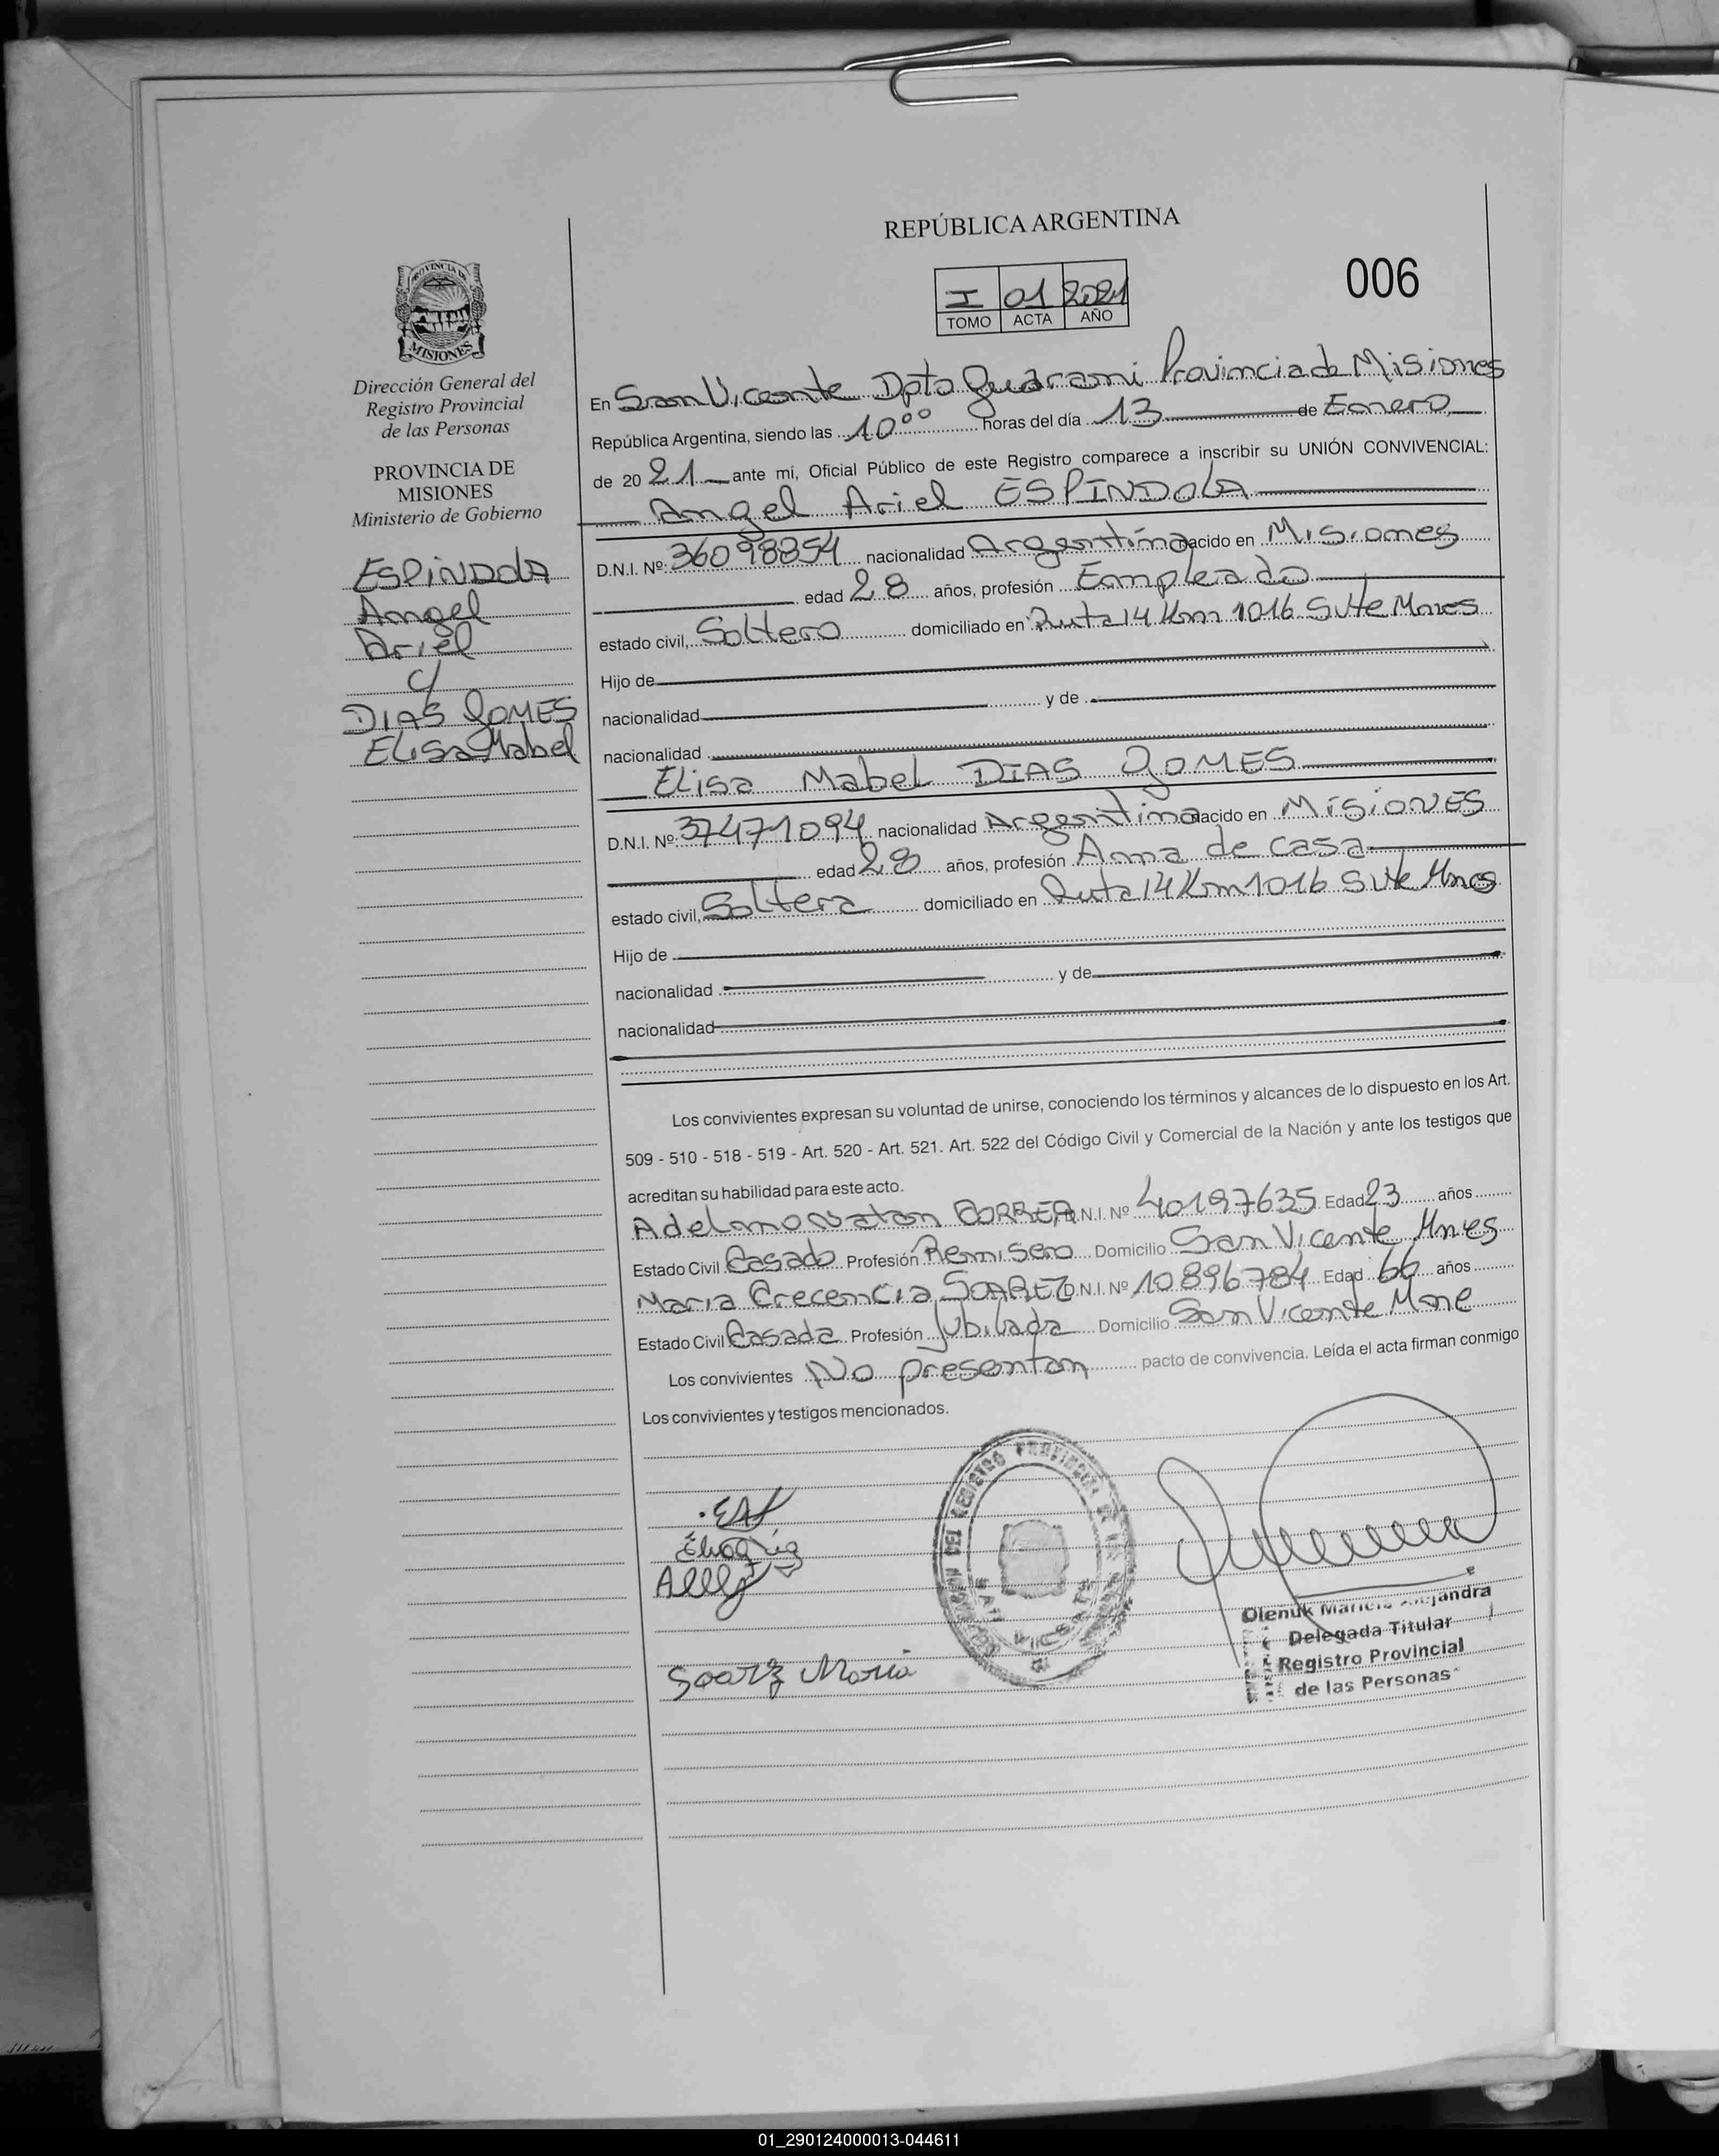 REPÚBLICA ARGENTINA
006
I 01 2021
TOMO ACTA AÑO
PROVINCIA DE
MISIONES
Dirección General del
Registro Provincial
de las Personas
PROVINCIA DE
MISIONES
Ministerio de Gobierno
ESPINDOLA
Angel
Ariel
c/
DIAS GOMES
Elisa Mabel
En San Vicente Dpto Guarani Provincia de Misiones
República Argentina, siendo las 10⁰⁰ horas del día 13 de Enero
de 2021 ante mí, Oficial Público de este Registro comparece a inscribir su UNIÓN CONVIVENCIAL:
Angel Ariel ESPINDOLA
D.N.I. Nº: 36098854 nacionalidad Argentina nacido en Misiones
edad 28 años, profesión Empleado
estado civil, Soltero domiciliado en Ruta 14 Km 1016 S Vte Mnes
Hijo de
nacionalidad y de
nacionalidad
Elisa Mabel DIAS GOMES
D.N.I. Nº: 37471094 nacionalidad Argentina nacido en Misiones
edad 28 años, profesión Ama de casa
estado civil, Soltera domiciliado en Ruta 14 Km 1016 S Vte Mnes
Hijo de
nacionalidad y de
nacionalidad
Los convivientes expresan su voluntad de unirse, conociendo los términos y alcances de lo dispuesto en los Art.
509 - 510 - 518 - 519 - Art. 520 - Art. 521. Art. 522 del Código Civil y Comercial de la Nación y ante los testigos que
acreditan su habilidad para este acto.
CORREA D.N.I. Nº 40197635 Edad 23 años
Estado Civil Casado Profesión Remisero Domicilio San Vicente Mnes
Maria Crecencia SOAREZ D.N.I. Nº 10896784 Edad 66 años
Estado Civil Casada Profesión Jubilada Domicilio San Vicente Mne
Los convivientes No presentan pacto de convivencia. Leída el acta firman conmigo
Los convivientes y testigos mencionados.
Soarz Maria
Olenuk
Delegada Titular
Registro Provincial
de las Personas
01_290124000013-044611